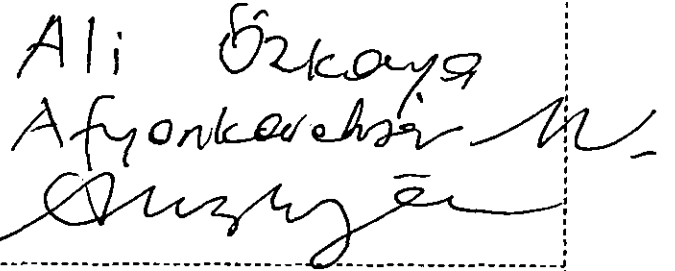 Ali Özkaya
Afyonkarahisar M.